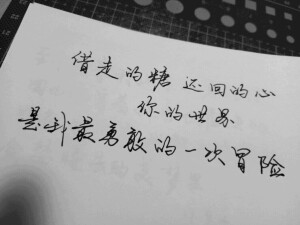 借走的糖 还回的心
你的世界
是我最勇敢的一次冒险